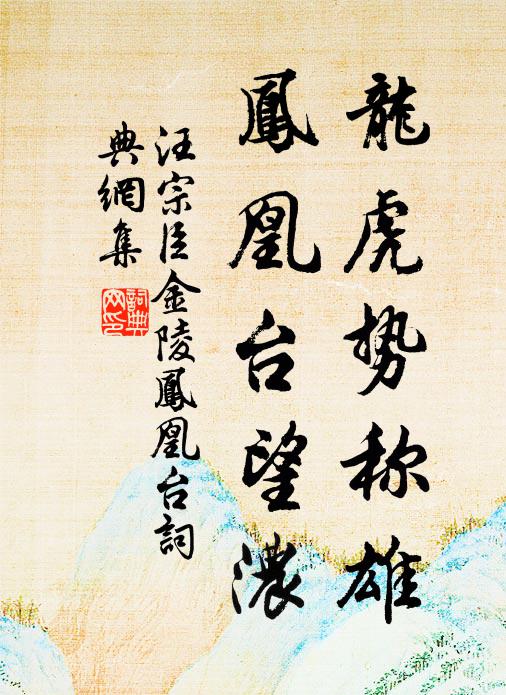 龍虎势称雄
鳳凰台望濃
汪宗臣金陵鳳凰台詞
典網集
詞典
网印